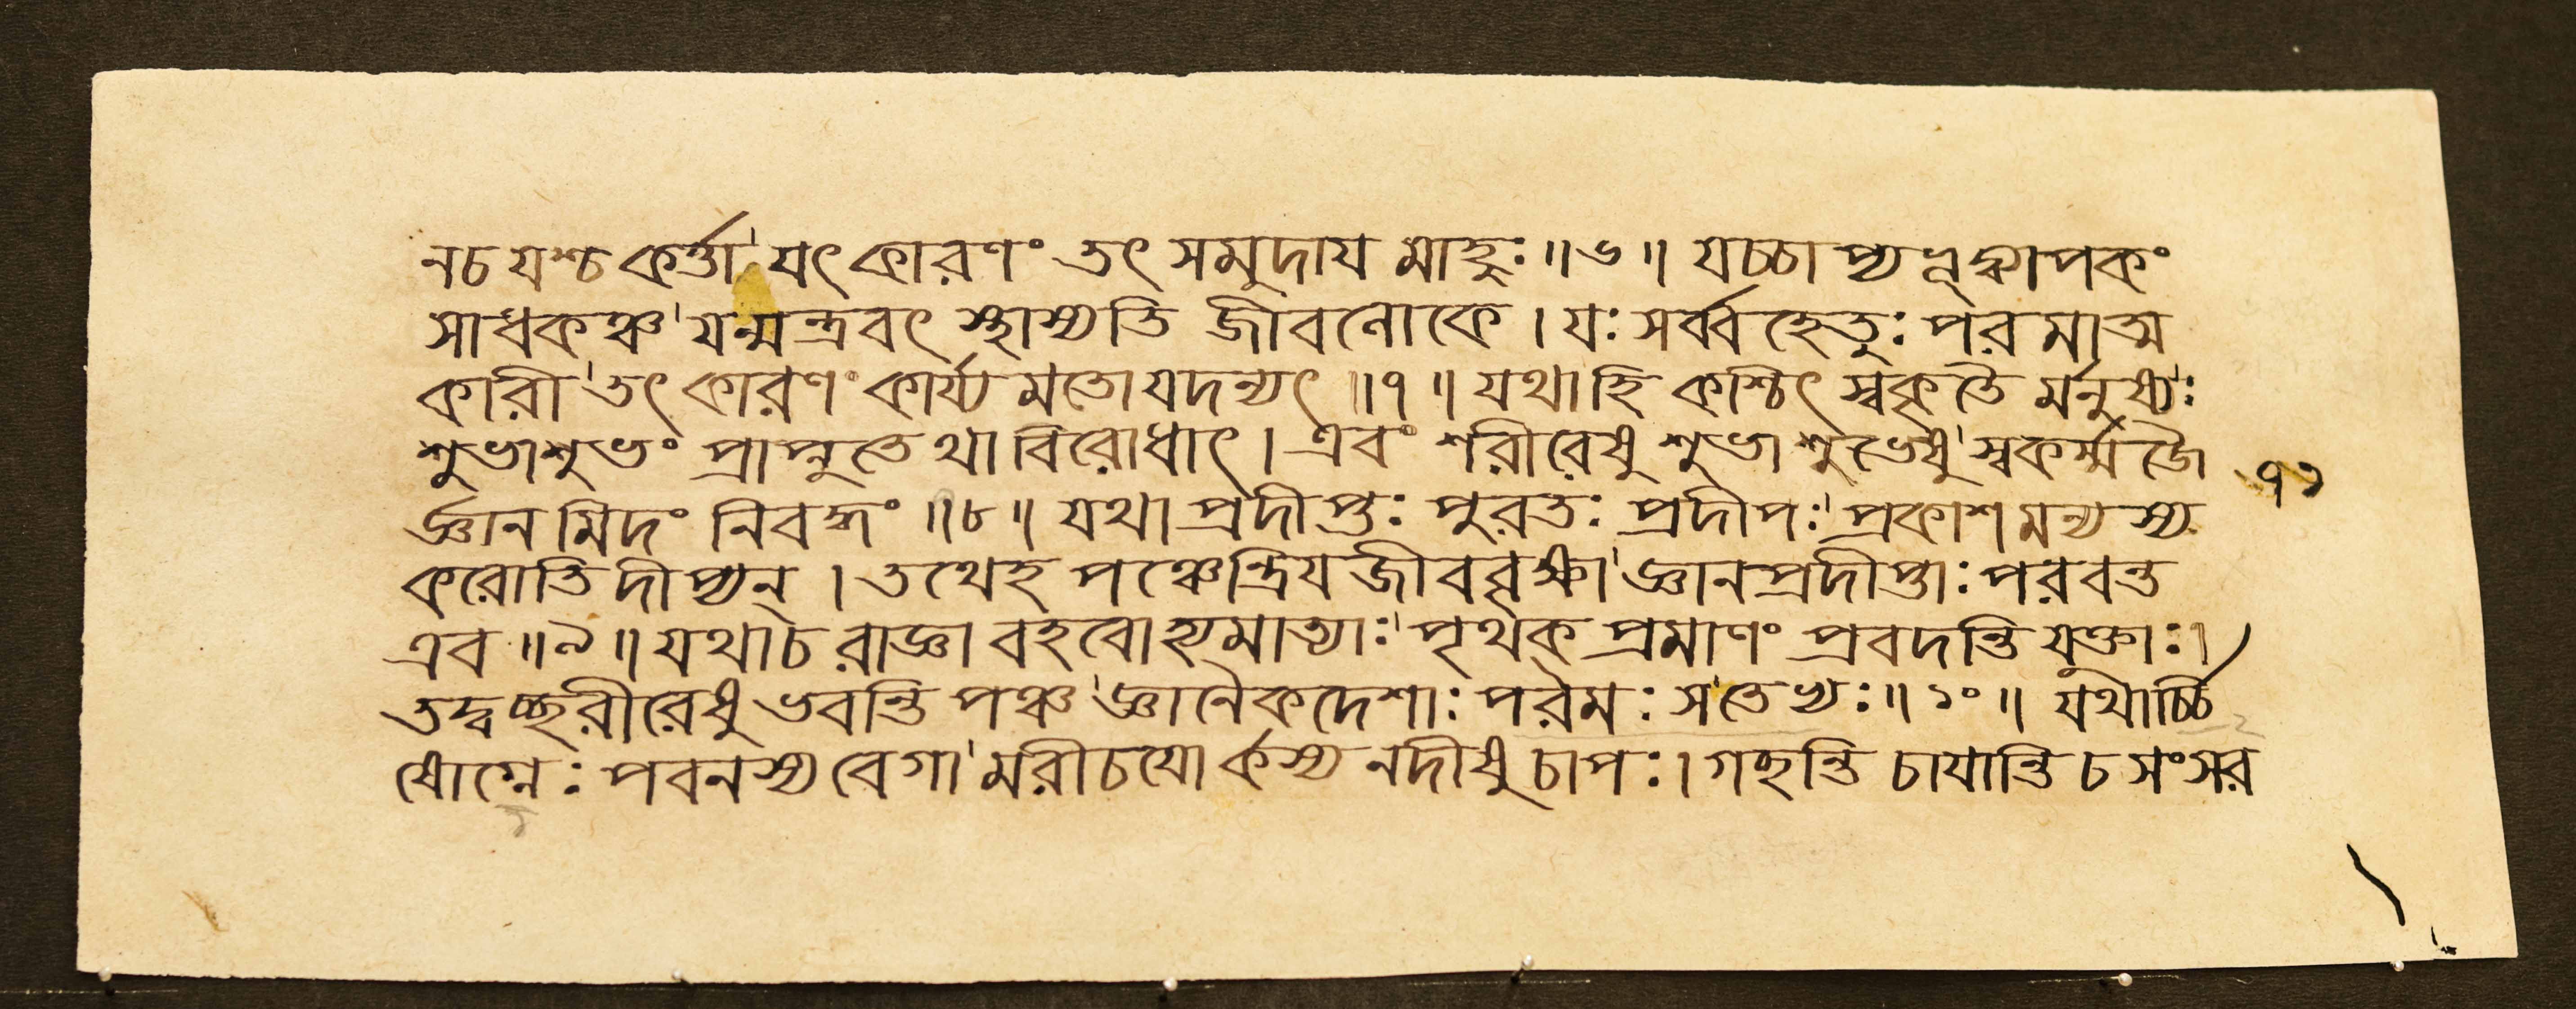 নচ যশ্চ কর্ত্তা যৎ কারণং তৎ সমুদায মাহুঃ ॥৬॥ যচ্চাপ্য
সাধকঞ্চ যন্মন্ত্রবৎ স্থাস্যতি জীবলোকে । যঃ সর্ব্ব হেতুঃ পরমাত্ম
কারী তৎ কারণং কার্য্য মতো যদন্যৎ ॥৭॥ যথাহি কশ্চিৎ স্বকৃতৈ র্মনুষ্যঃ
শুভাশুভং প্রাপ্নুতে থাবিরোধাৎ । এবং শরীরেষু শুভাশুভেষু স্বকর্ম্মজৈ
র্জ্ঞান মিদং নিবদ্ধং ॥৮॥ যথা প্রদীপ্তঃ পুরতঃ প্রদীপঃ প্রকাশমন্যস্য
করোতি দীপ্যন্ । তথেহ পঞ্চেন্দ্রিয জীববৃক্ষা জ্ঞানপ্রদীপ্তাঃ পরবন্ত
এব ॥৯॥ যথাচ রাজ্ঞা বহবোহ্যমাত্যাঃ পৃথক প্রমাণং প্রবদন্তি যুক্তাঃ।
তদ্বচ্ছরীরেষু ভবন্তি পঞ্চ জ্ঞানৈকদেশাঃ পরমঃ স তেভ্যঃ ॥১০॥ যথার্চ্চি
ষোগ্নেঃ পবনস্য বেগা মরীচযোর্কস্য নদীষু চাপঃ। গছন্তি চাযান্তি চ সংসর
৭১